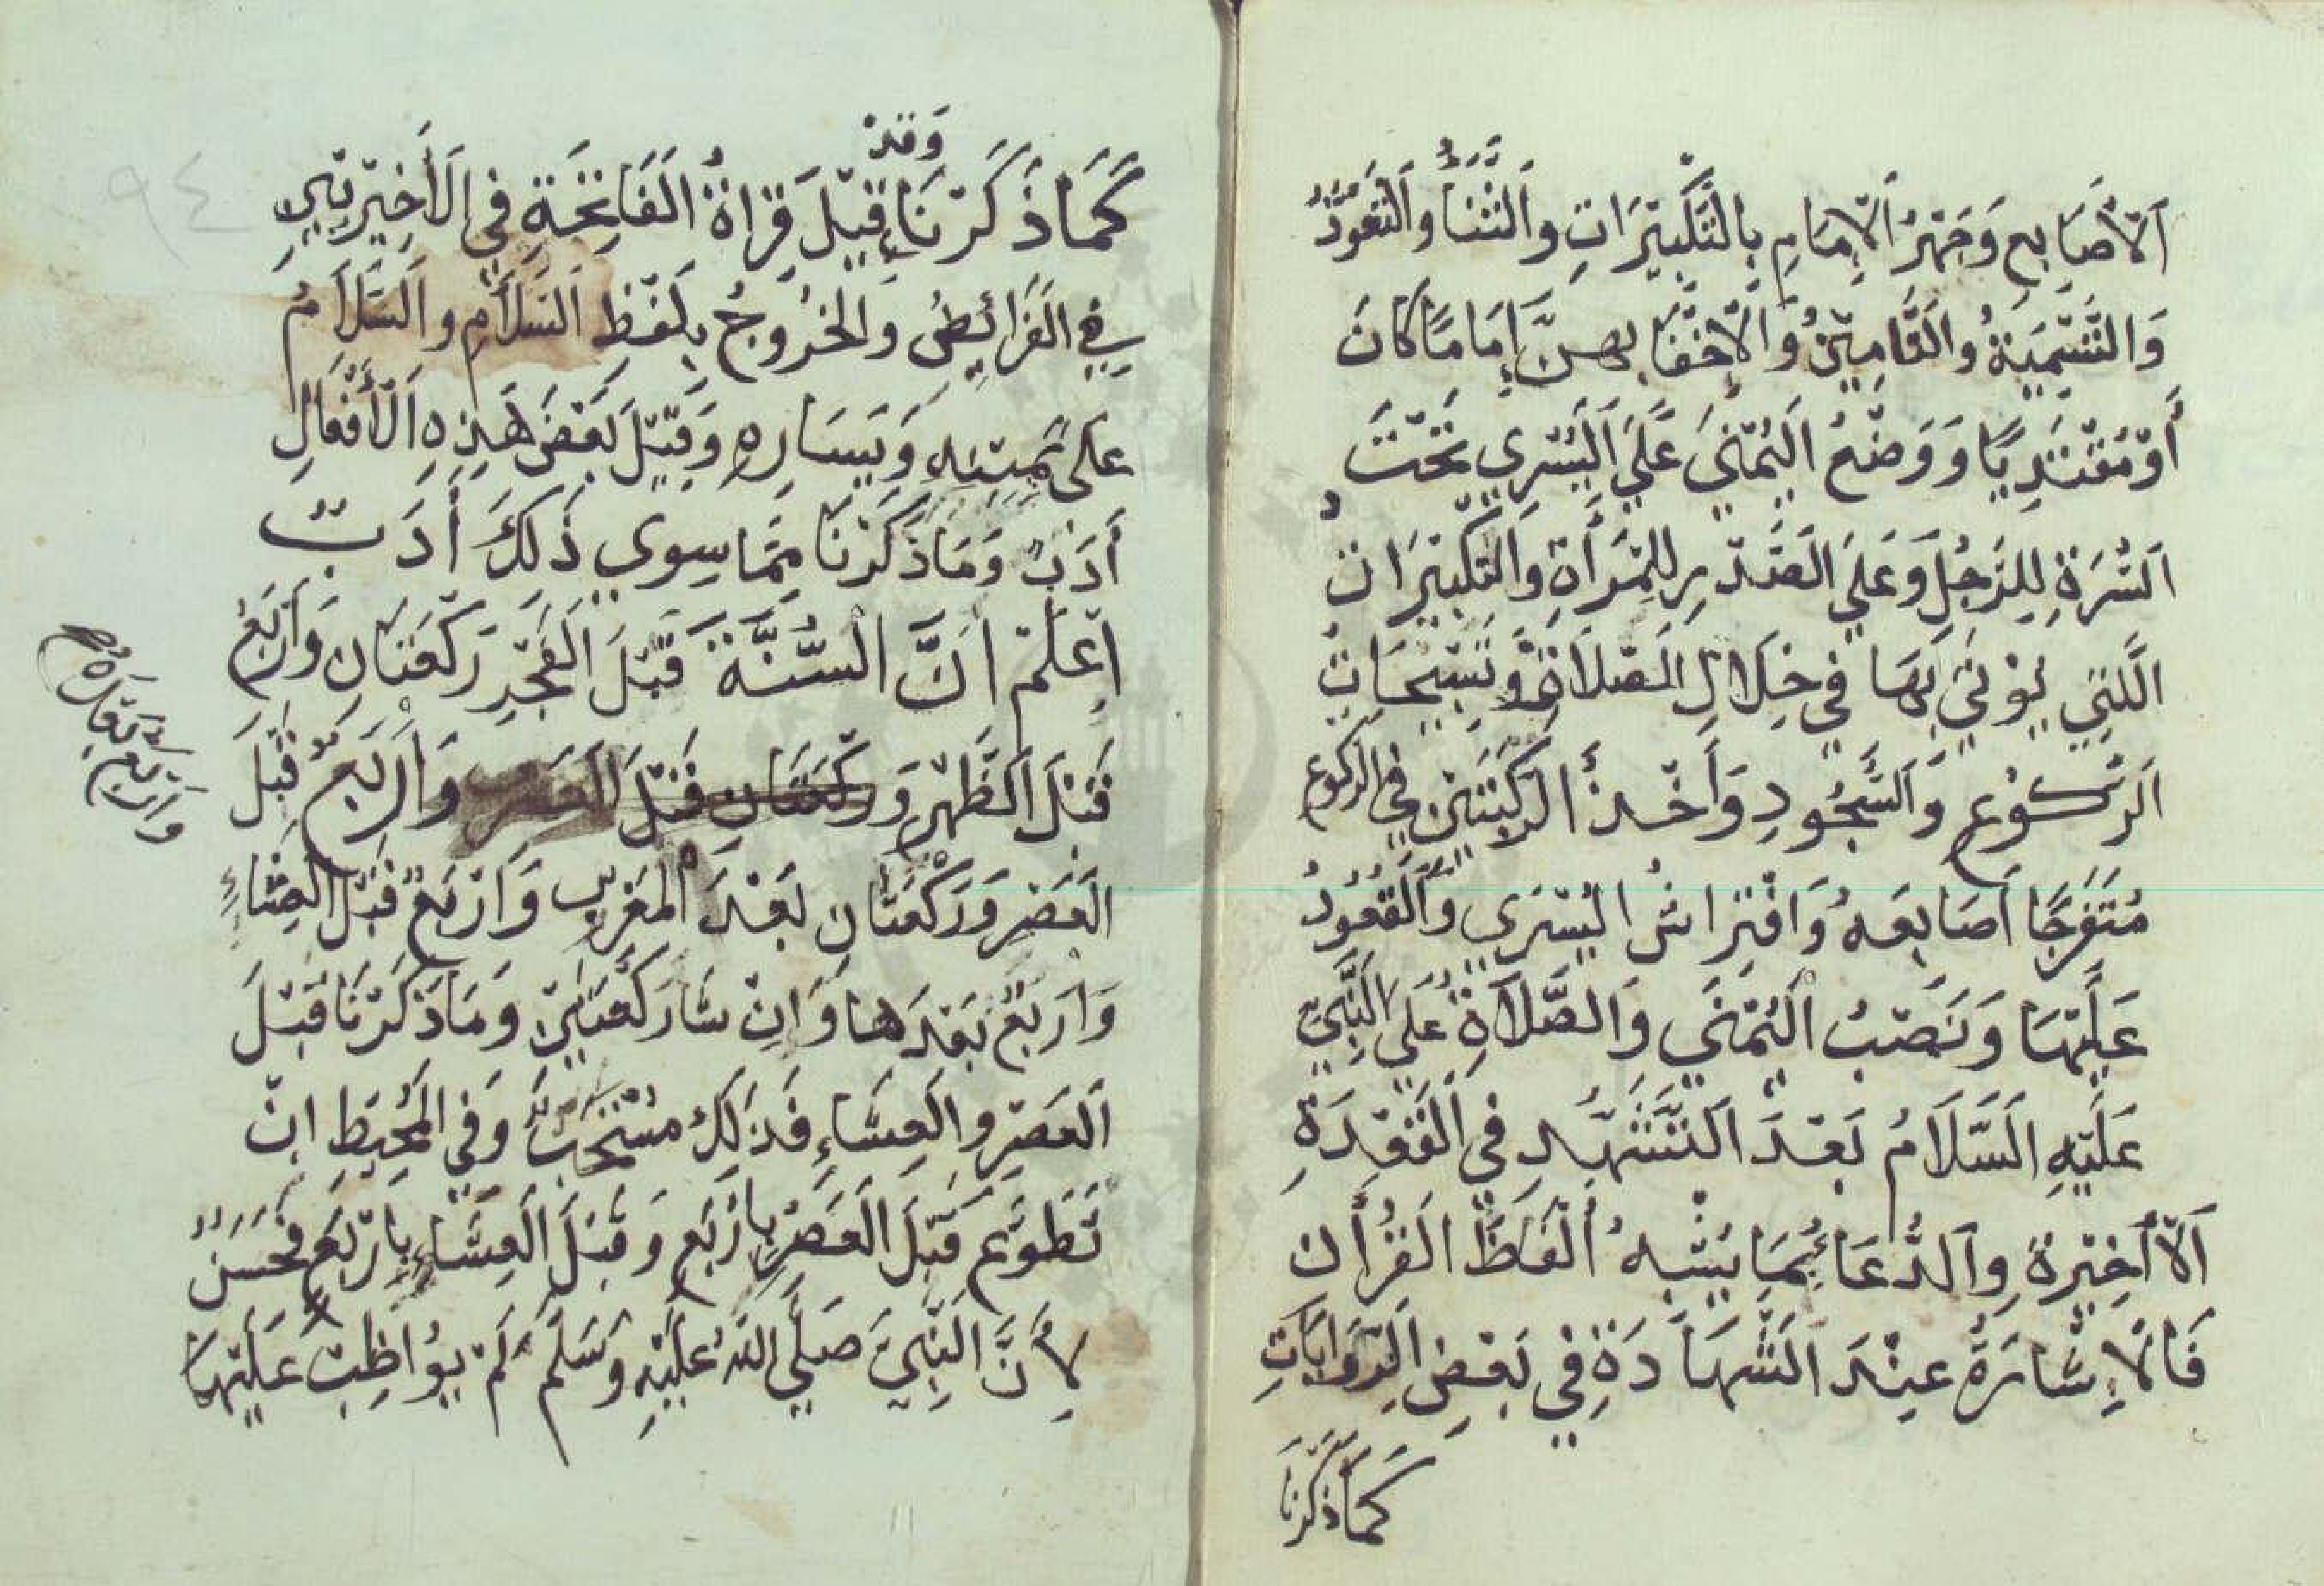 اَلْاَصَابِعِ وَجَهْرُ الْاِمَامِ بِالتَّكْبِيْرَاتِ والثَّنَاُ والتَّعَوُّذُ
وَالتَّسْمِيَةُ والتَّامِيْنُ وَالْاِخْفَا بِهِنَّ اِمَامًا كَانَ
أَوْ مُقْتَدِيًا وَوَضْعُ الْيُمْنَي عَلَي الْيُسْرِي تَحْتَ
السُّرَةِ لِلرَّجُلِ وَعَلَي الصَّدْرِ لِلْمَرْأَةِ وَالتَّكْبِيْرَاتُ
الَّتِي يُوْتَي بِهَا فِي خِلَالِ الصَّلَاةِ وَتَسْبِيْحَاتُ
الرُّكُوْعِ وَالسُّجُودِ وَأَخْذُ الرُّكْبَتَيْنِ فِي الرُّكُوعِ
مُتَفَرِّجًا اَصَابِعَهُ وَافْتِرَاشُ الْيُسْرَي وَالْقُعُوْدُ
عَلَيْهَا وَنَصْبُ الْيُمْنَي وَالصَّلَاةُ عَلَي النَّبِيِّ
عَلَيْهِ السَّلَامُ بَعْدَ التَّشَهُّدِ فِي الْقَعْدَةِ
اَلْأَخِيْرَةِ وَالدُّعَاءُ بِمَا يُشْبِهُ الْفَاظَ الْقُرْأَن
فَالْاِشَارَةُ عِنْدَ الشَّهَادَةِ فِي بَعْضِ الرِّوَايَاتِ
كَمَا ذَكَرْنَا
وَقَدْ
كَمَا ذَكَرْنَا قِيْلَ قِرَاةُ الْفَاتِحَةِ فِي الْأَخِيْرَتَيْنِ
فِي الْفَرَائِضِ وَالْخُرُوجُ بِلَفْظِ السَّلَامِ وَالسَّلَامُ
عَلَى يَمِيْنِهِ وَيَسَارِهِ وَقِيْلَ بَعْضُ هَذِهِ الْأَفْعَالِ
أَدَبٌ وَمَا ذَكَرْنَا مِمَّا سِوي ذَلِكَ أَدَبٌ
اِعْلَمْ اَنَّ السُّنَّةَ قَبْلَ الْفَجْرِ رَكْعَتَانِ وَاَرْبَعٌ
قَبْلَ الظُّهْرِ وَرَكْعَتَانِ قَبْلَ الْعَصْرِ وَاَرْبَعٌ قَبْلَ
الْعَصْرِ وَرَكْعَتَانِ بَعْدَ الْمَغْرِبِ وَاَرْبَعٌ قَبْلَ الْعِشَاءِ
وَاَرْبَعٌ بَعْدَهَا وَاِنْ شَا رَكْعَتَيْنِ وَمَا ذَكَرْنَا قَبْلَ
الْعَصْرِ وَالْعِشَاءِ فَذَلِكَ مُسْتَحَبٌّ وَفِي الْمُحِيْطِ اِنْ
تَطَوَّع قَبْلَ الْعَصْرِ بِاَرْبَعٍ وَقَبْلَ الْعِشَاءِ بِاَرْبَعٍ فَحَسَنٌ
لِأَنَّ النَّبِيَّ صَلَّي اللهُ عَلَيْهِ وَسَلَّمَ لَمْ يُوَاظِبْ عَلَيْهَا
وَاَرْبَعٌ بَعْدَهُ صح
٩٤